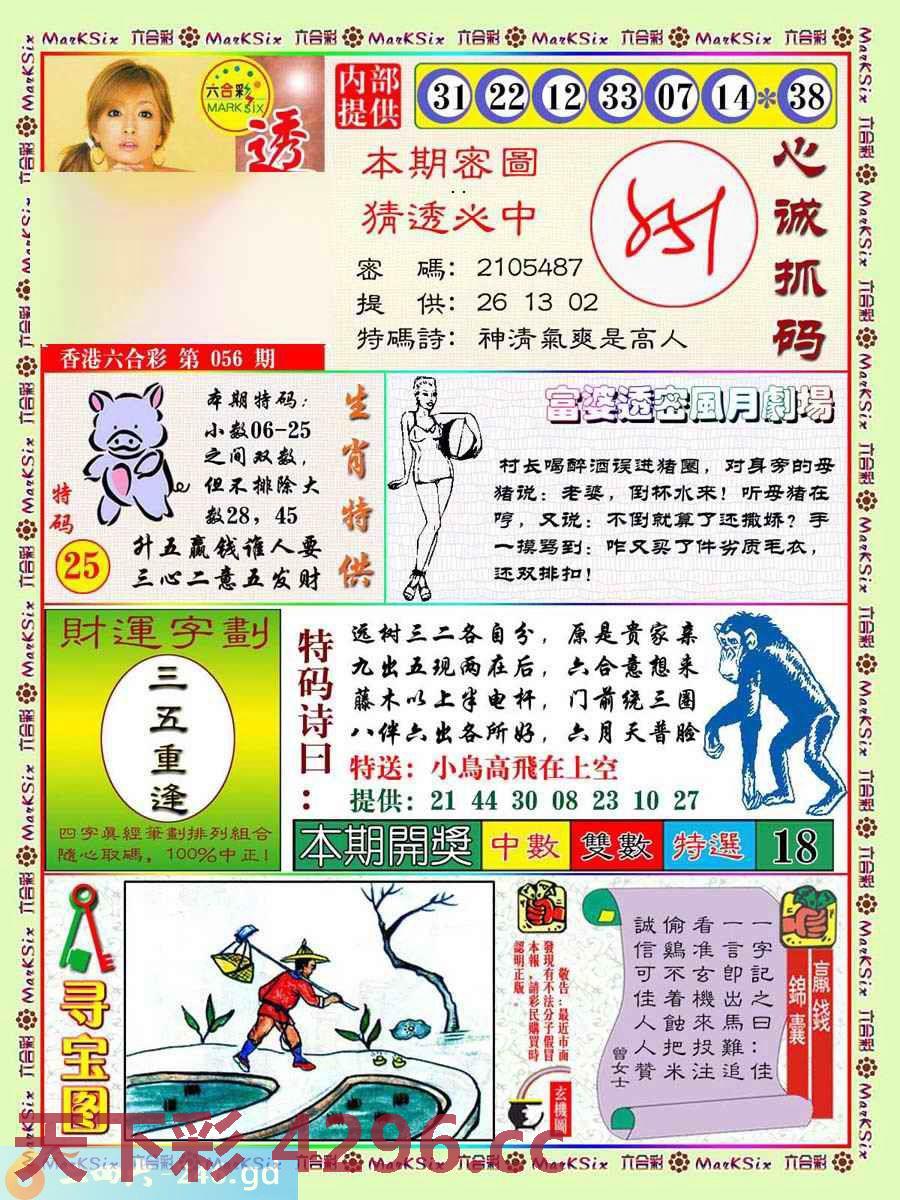 MarKSix 六合彩 MarKSix 六合彩 MarKSix 六合彩 MarKSix 六合彩 MarKSix 六合彩
六合彩
MARK SIX
透
内部
提供
31 22 12 33 07 14 * 38
心诚抓码
本期密圖
猜透必中
密 碼: 2105487
提 供: 26 13 02
特碼詩: 神清氣爽是高人
香港六合彩 第 056 期
本期特码:
小数06-25
之间双数,
但不排除大
数28, 45
升五赢钱谁人要
三心二意五发财
生肖特供
特码
25
富婆透密風月劇場
村长喝醉酒误进猪圈, 对身旁的母
猪说: 老婆, 倒杯水来! 听母猪在
哼, 又说: 不倒就算了还撒娇? 手
一摸骂到: 咋又买了件劣质毛衣,
还双排扣!
財運字劃
三五重逢
四字真經筆劃排列組合
隨心取碼, 100%中正!
特码诗曰:
远树三二各自分, 原是贵家亲
九出五现两在后, 六合意想来
藤木以上半电杆, 门前统三圈
八伴六出各所好, 六月天普脸
特送: 小鳥高飛在上空
提供: 21 44 30 08 23 10 27
本期開獎 中數 雙數 特選 18
寻宝图
敬告:最近市面
發現有不法分子假冒
本報,請彩民購買時
認明正版。
玄機圖
贏錢
錦囊
一字記之曰:佳
一言即出馬難追
看准玄機來投注
偷鷄不着蝕把米
誠信可佳人人贊
曾女士
天下彩 4296.cc
MarKSix 六合彩 MarKSix 六合彩 MarKSix 六合彩 MarKSix 六合彩